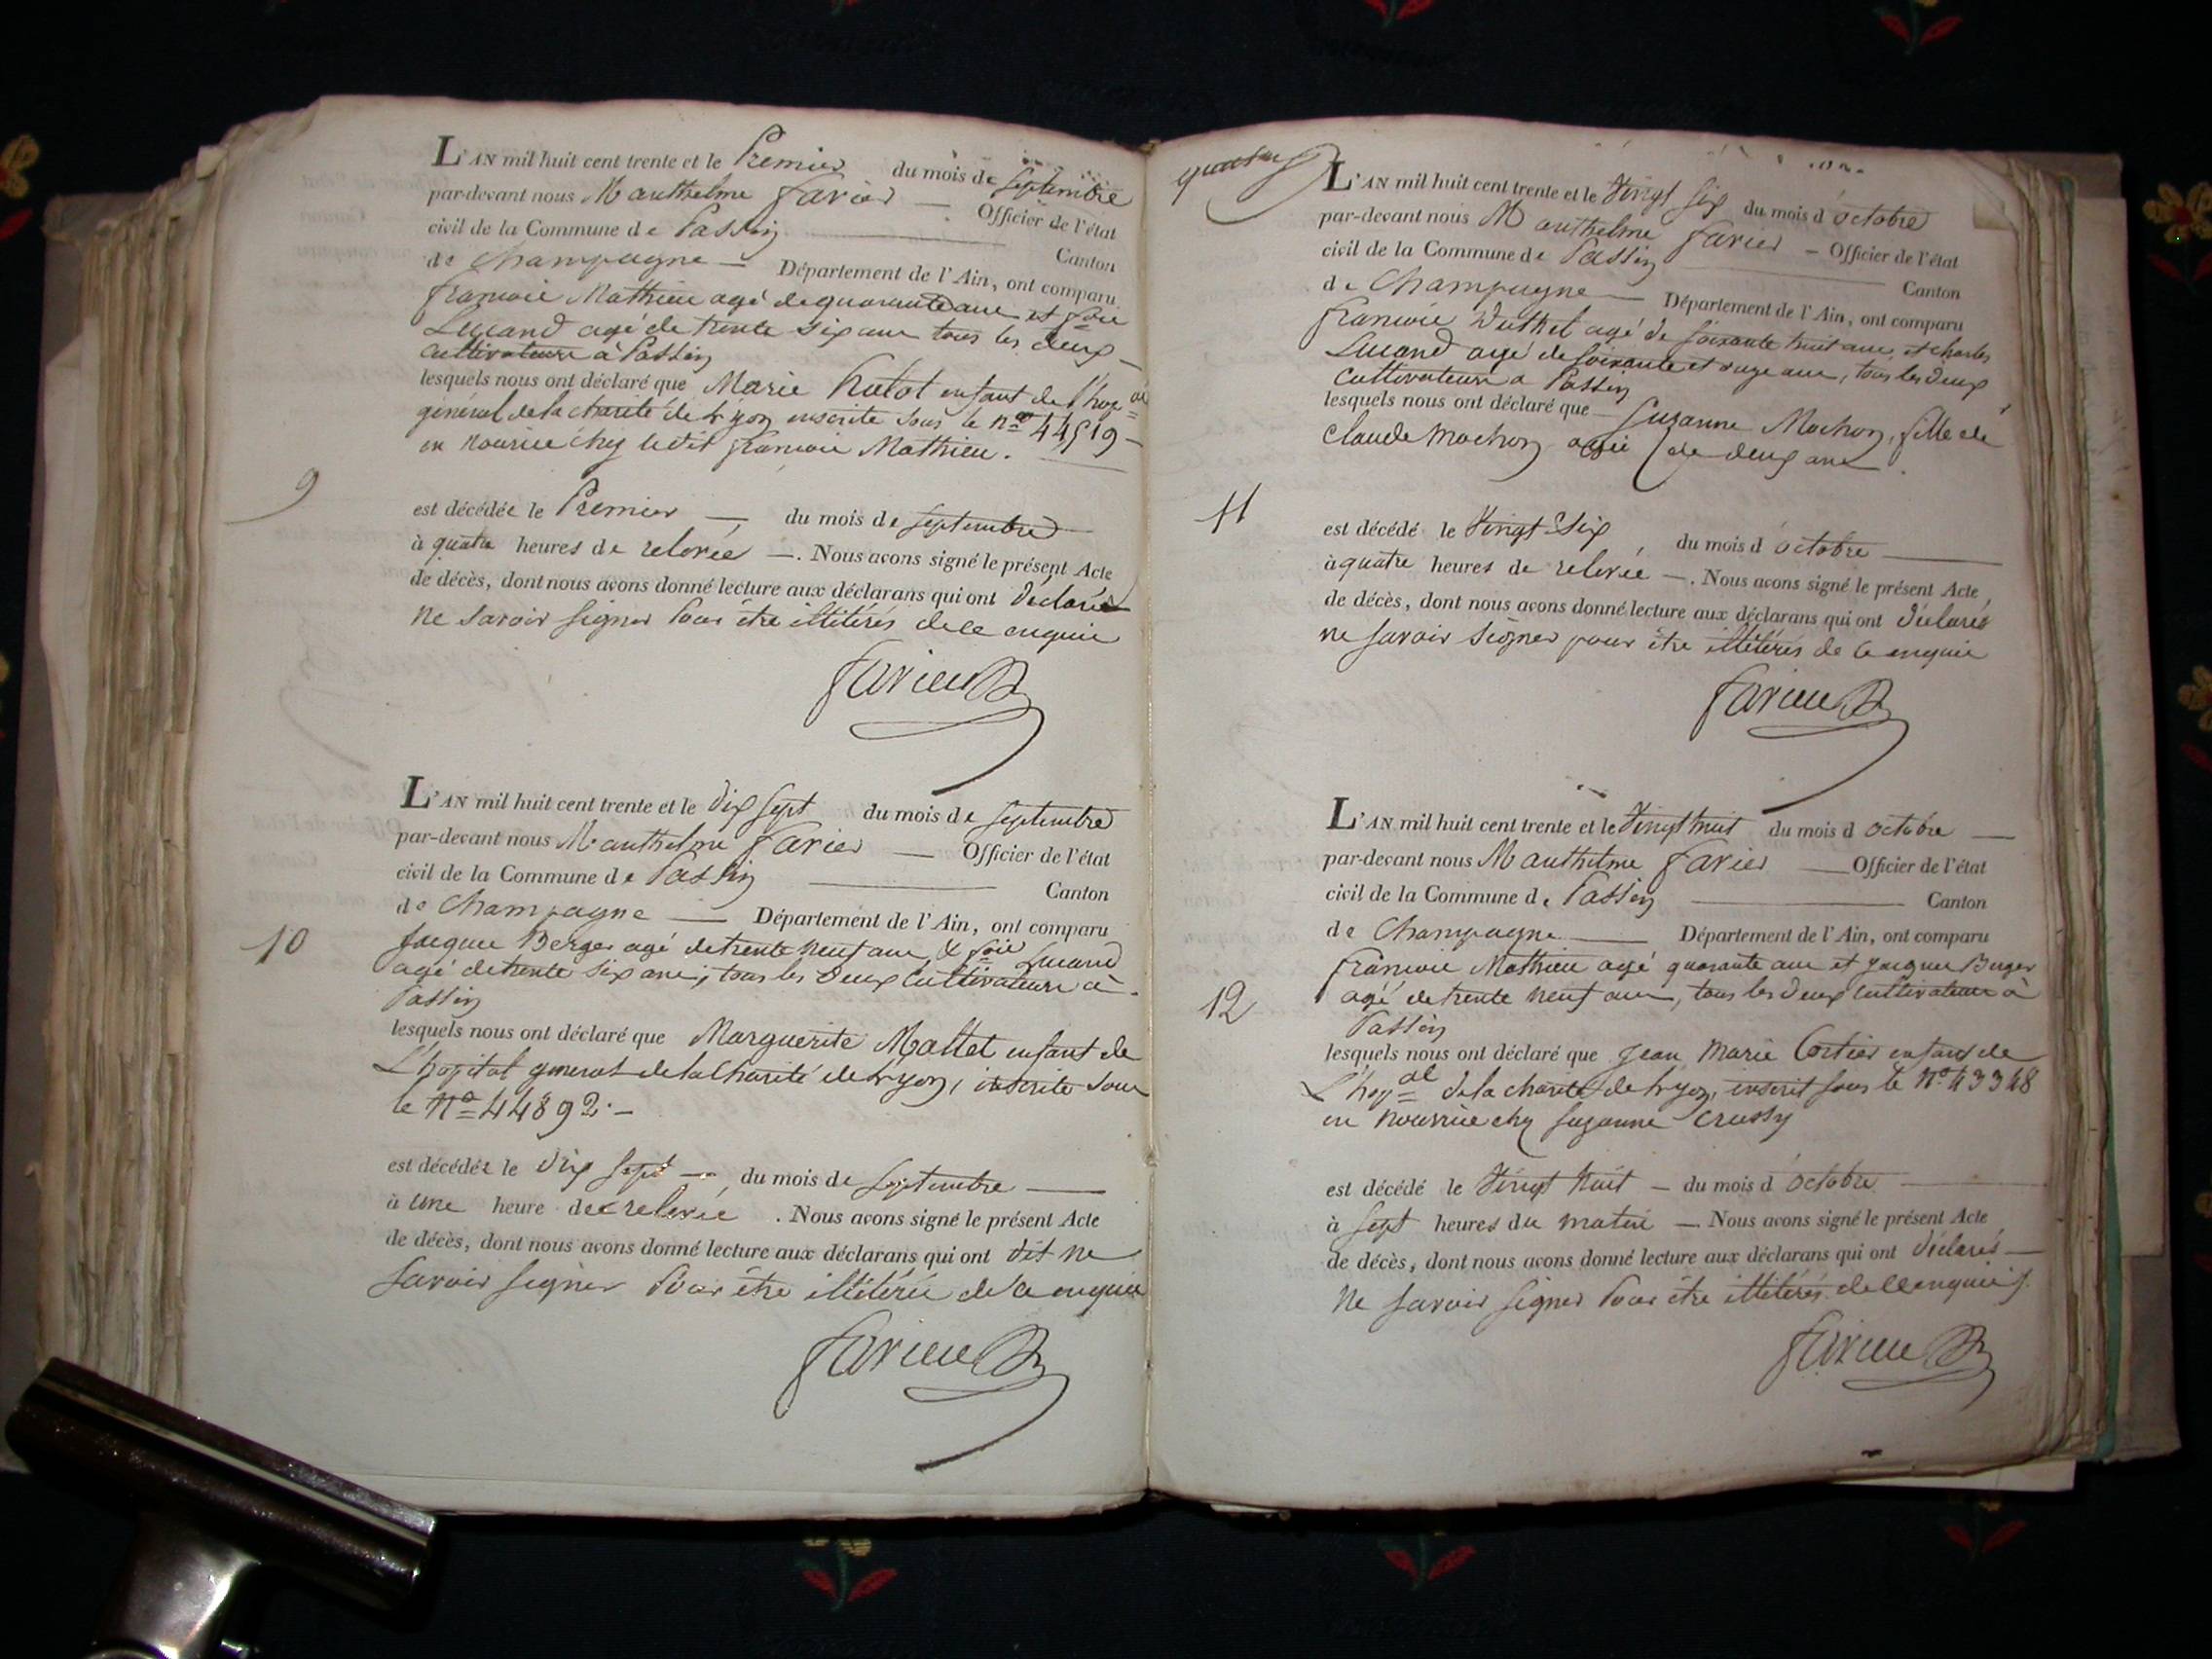 L'AN mil huit cent trente et le Premier du mois de septembre
par-devant nous M anthelme favier — Officier de l'état
civil de la Commune de Passin Canton
de Champagne — Département de l'Ain, ont comparu
francois Mathieu agé de quarante ans et
Lucand agé de trente six ans tous les deux
cultivateurs à Passin
lesquels nous ont déclaré que Marie hulot enfant de l'hop al
général de la charité de Lyon inscrite sous le no 44519 —
en nourice chez ledit francois Mathieu.
9
est décédée le Premier — du mois de septembre
à quatre heures de relevée —. Nous avons signé le présent Acte
de décès, dont nous avons donné lecture aux déclarans qui ont déclarés
ne savoir signer pour être illitérés de ce enquis
favier
L'AN mil huit cent trente et le dix sept du mois de septembre
par-devant nous M. anthelme favier — Officier de l'état
civil de la Commune de Passin Canton
de Champagne — Département de l'Ain, ont comparu
10
Jacque Berger agé de trente neuf ans & Lucand
agé de trente six ans, tous les deux cultivateurs à
Passin
lesquels nous ont déclaré que Marguerite Mollet enfant de
L'hopital general de la Charité de Lyon, inscrite sous
le No 44892. —
est décédée le dix sept — du mois de septembre —
à une heure de relevée . Nous avons signé le présent Acte
de décès, dont nous avons donné lecture aux déclarans qui ont dit ne
savoir signer pour être illitérés de ce enquis
favier
L'AN mil huit cent trente et le vingt six du mois d'octobre
par-devant nous M anthelme favier — Officier de l'état
civil de la Commune de Passin Canton
de Champagne — Département de l'Ain, ont comparu
francois agé de soixante huit ans, et charles
Lucand agé de soixante et onze ans, tous les deux
cultivateurs a Passin
lesquels nous ont déclaré que — Suzanne Mochon, fille de
Claude mochon agée de deux ans
11
est décédé le vingt six du mois d'octobre —
à quatre heures de relevée —. Nous avons signé le présent Acte,
de décès, dont nous avons donné lecture aux déclarans qui ont déclarés
ne savoir signer pour être illitérés de ce enquis
favier
L'AN mil huit cent trente et le vingt huit du mois d'octobre —
par-devant nous M anthelme favier — Officier de l'état
civil de la Commune de Passin Canton
de Champagne — Département de l'Ain, ont comparu
francois Mathieu agé quarante ans et jacque Berger
12
agé de trente neuf ans, tous les deux cultivateurs à
Passin
lesquels nous ont déclaré que Jean Marie Cortier enfant de
L'hop al de la charité de Lyon, inscrit sous le No 43348
en nourrice chez suzanne crussy
est décédé le vingt huit — du mois d'octobre
à sept heures du matin —. Nous avons signé le présent Acte
de décès, dont nous avons donné lecture aux déclarans qui ont déclarés —
ne savoir signer pour être illitérés de ce enquis
favier